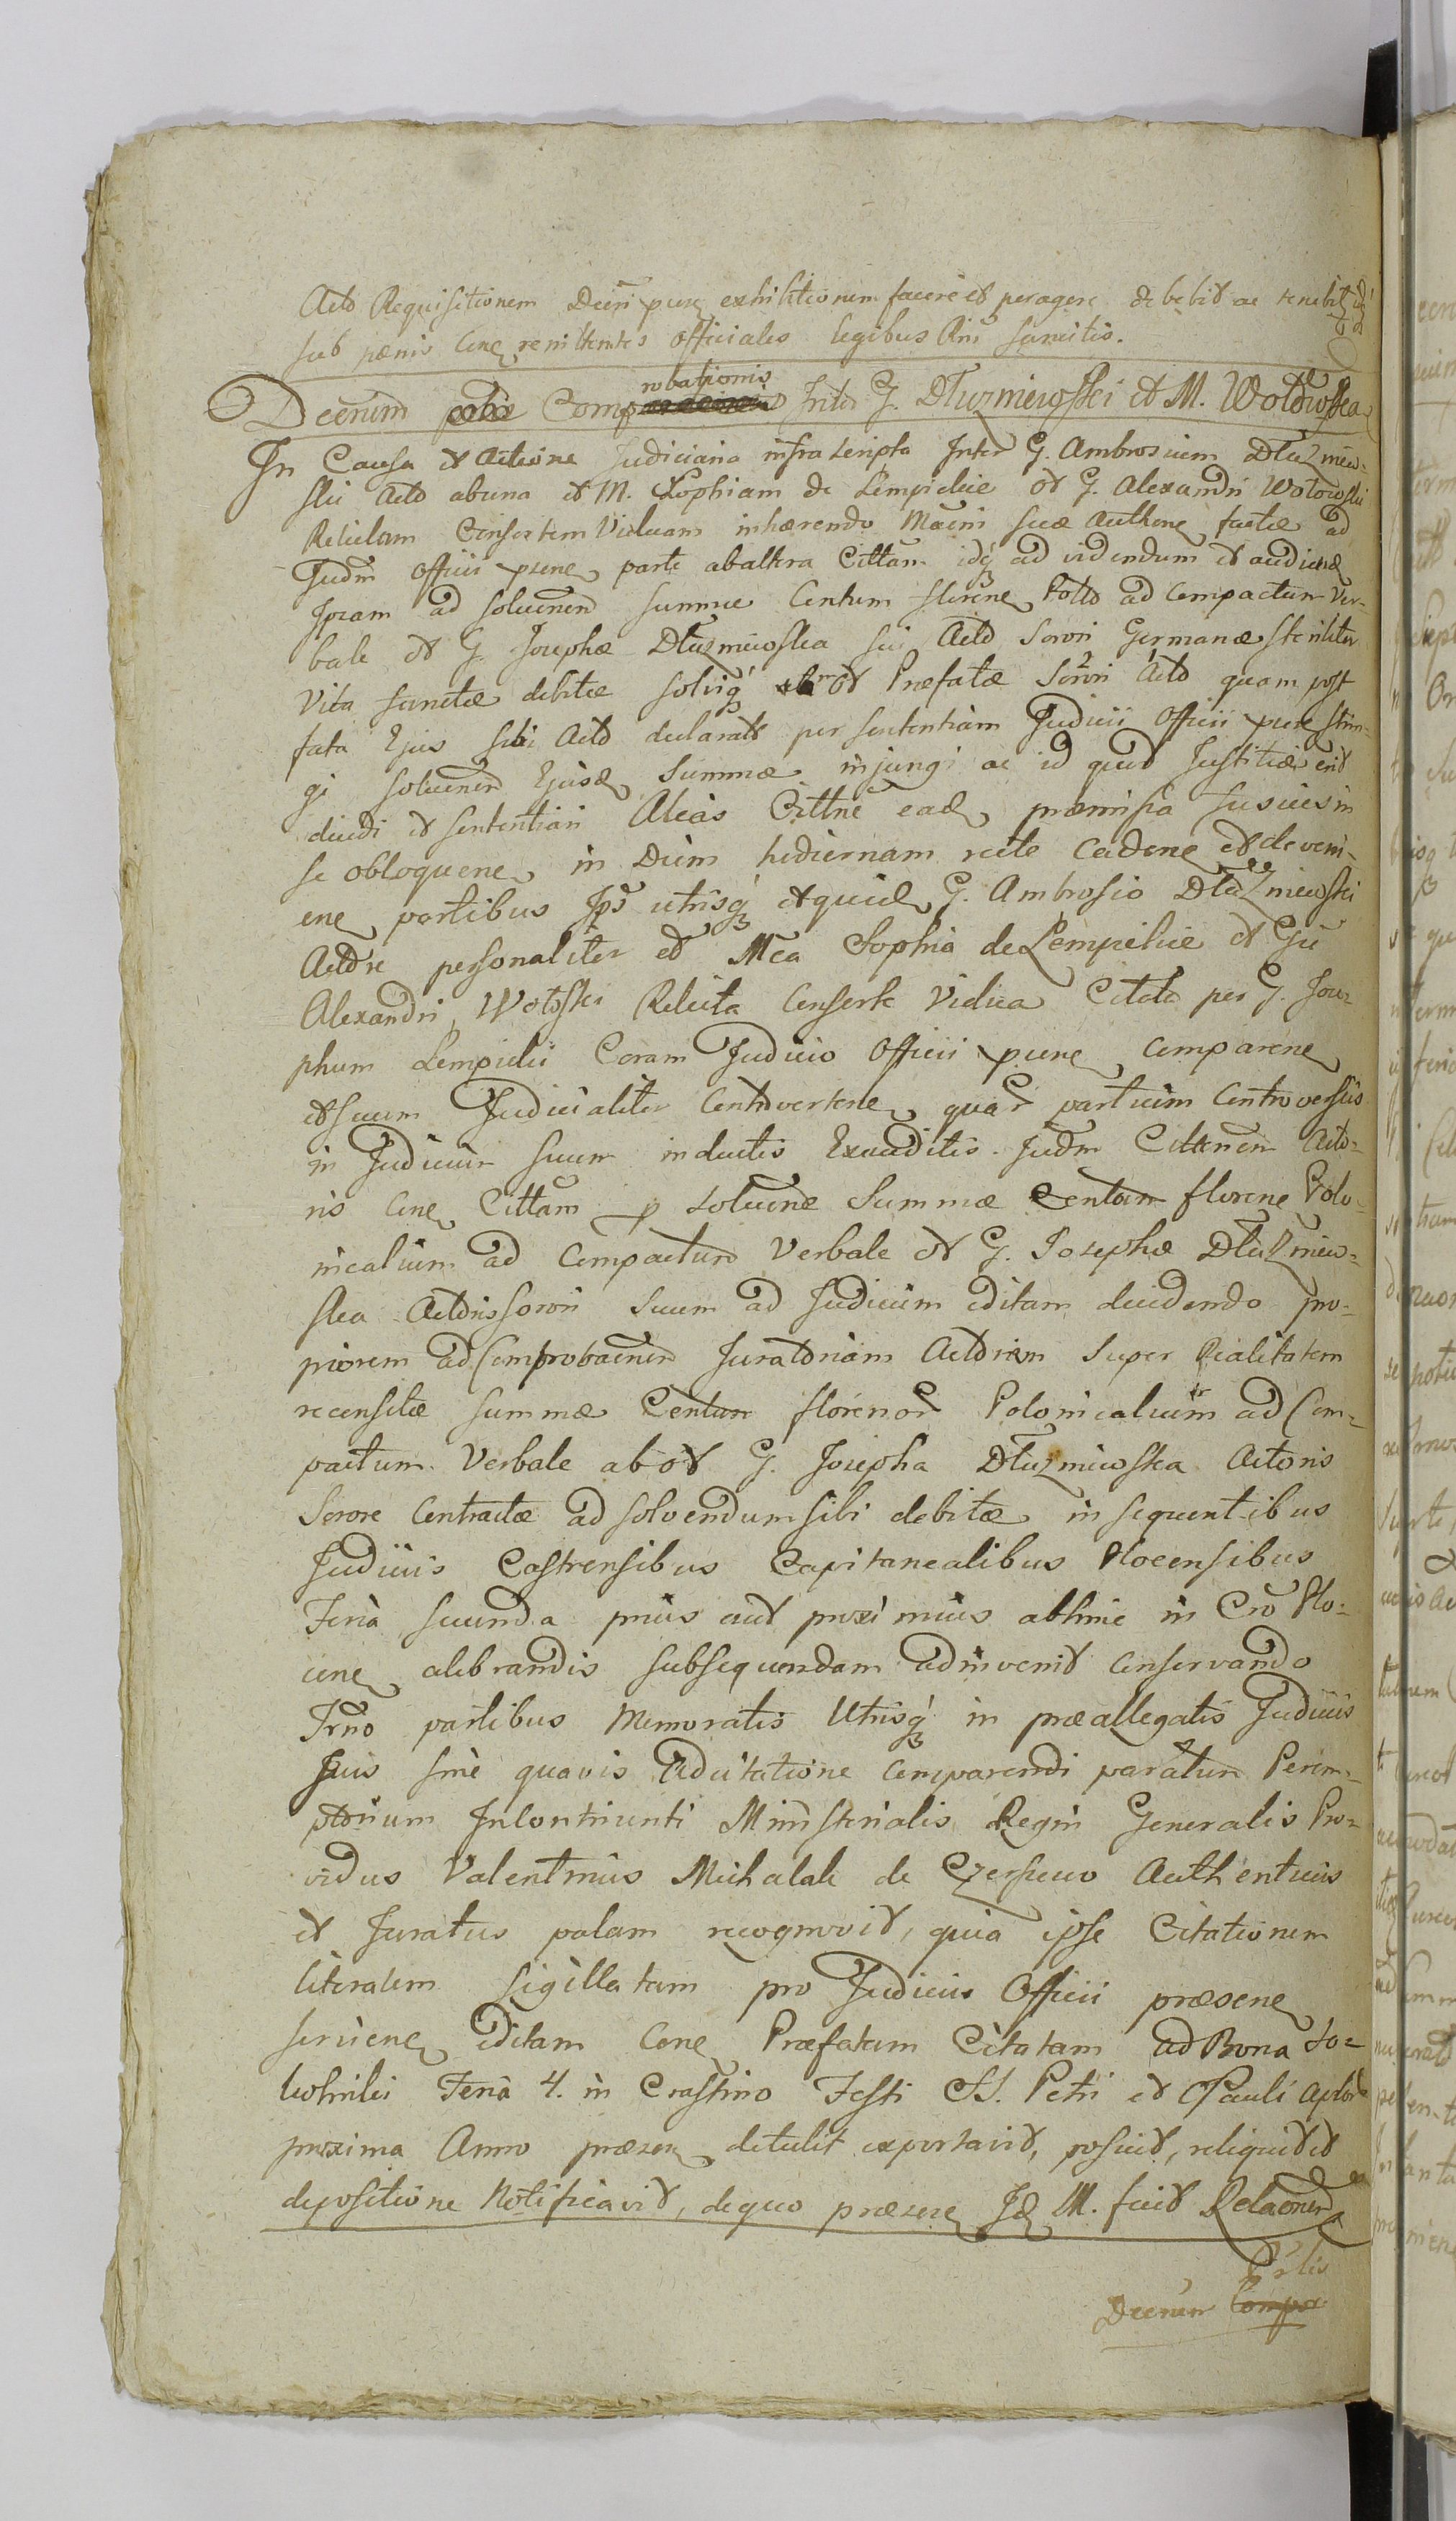 Actô Requisitionem Decri pñne exhibitionem facere et peragere debebit ac tenebit idq
sub pænis Cnc renittentes Officiales legibus Rni sancitis.
Decrum Comprobationis Inter G. Dłuzniewski et M. Wołowska
In Causa et Actione Judiciaria infrascripta Inter G. Ambrosium Dłuzniew-
ski Actô abuna et M. Zophiam de Lempickie ot G. Alexandri Wołowski
Relictam Consortem Viduam inhærendo Mãcni suæ Authcne factæ ad
Judm Officii pñsne parte abaltra Cittam idq ad videndum et audiend
Ipsam ad soluenem summæ Centum florene Pollo ad Compactum Ver-
bale ot G. Josephæ Dłuzniewska sui Actô Sorori Germanæ steriliter
Vita functæ debitæ soluiq ot Præfatæ Sorori Actô quam post
fata Ejus sibi Actô declarati per sententiam Judicii Officii pñsne strin-
gi soluenem Ejusd Summæ injungi ac id quod Justitiæ erit
decidi et sententiari Alias Cittne ead præmissa fusius in
se obloquene in Diem hodiernam recte Cadene et deveni-
ene partibus Ips utrisq et quid G. Ambrosio Dłuzniewski
Actôre personaliter et Mca Sophia de Lempickie ot Gsi
Alexandri Wołoski Relicta Consorte Vidua Citata per G. Jose-
phum Lempicki Coram Judicio Officii pñsne Comparene
et suum Judicialiter Controvertene quar partium Controversiis
in Judicium suum inductis Exauditis. Judm Cittnem Actô-
ris Cnc Cittam p soluene Summæ Centum florene Polo-
nicalium ad Compactum Verbale ot G. Josephæ Dłuzniew-
ska Actôris sorori Suum ad Judicium editam decidendo pro-
priorem ad Comprobaenem Juratoriam Actôrem Super Realitatem
recensitæ summæ Centum florenor Polonicalium ad Com-
pactum Verbale ab ot G. Josepha Dłuzniewska Actoris
Sorore Contractæ ad solvendum sibi debitæ in sequentibus
Judiciis Castrensibus Capitanealibus Plocensibus
Feria secunda prius aut proximius abhinc in Cro Plo-
cene celebrandis subsequendam adinvenit Conservando
Trno partibus Memoratis Utrisq in præallegatis Judiciis
suis sine quavis Adcitatione Comparendi paratum Perem-
ptorium Incontinenti Ministerialis Regni Generalis Pro-
vidus Valentinus Michalak de Czersiewo Authenticus
et Juratus palam recognovit, quia ipse Citationem
literalem sigillatam pro Judiciis Officii præsene
serviene editam Cone Præfatam Citatam ad Bona So-
Feria 4. in Crastino Festi SS. Petri et Pauli Aplor
proxima Anno præsen detulit exportavit, posuit, reliquit et
depositione Notificavit, de quo præsene Jd M. fecit Relaonem
Decrum